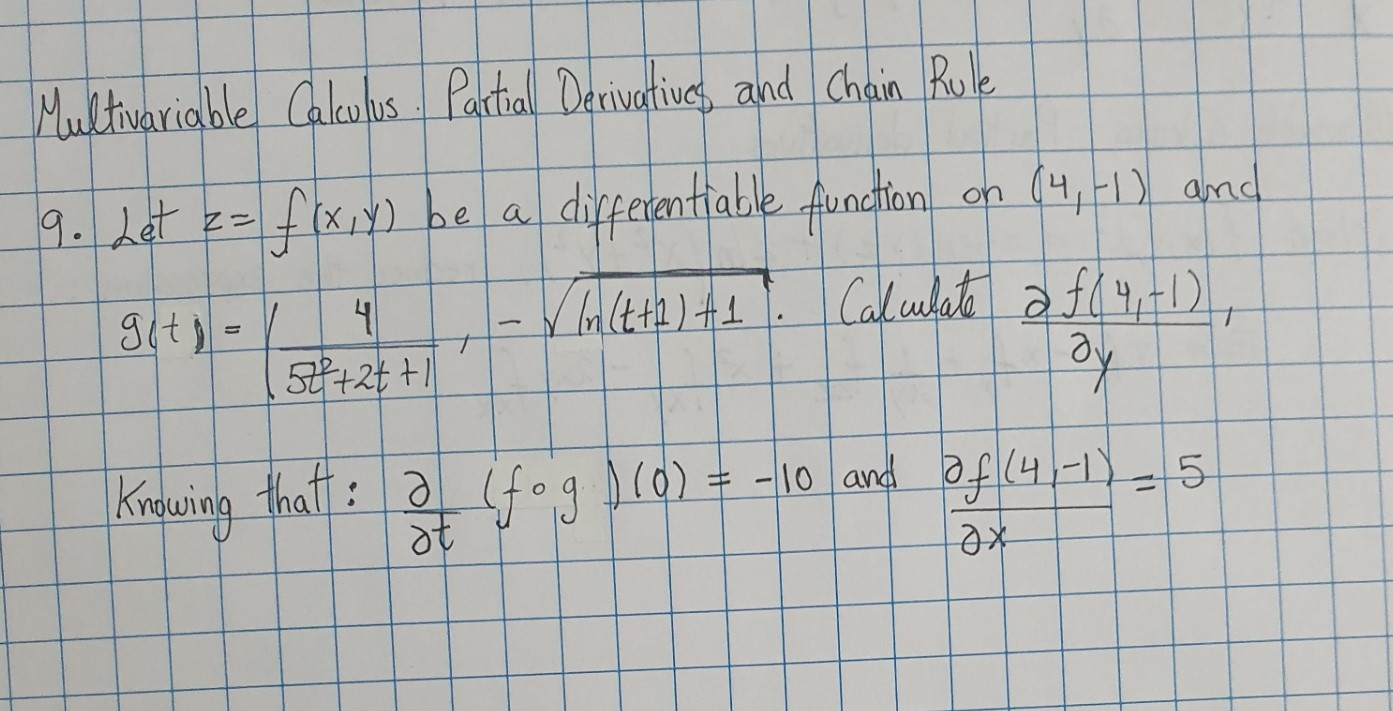 Multivariable Calculus. Partial Derivatives and Chain Rule
9. Let z = f(x,y) be a differentiable function on (4,-1) and
g(t) = ( 4 / 5t²+2t+1 , - √ln(t+1)+1 . Calculate ∂f(4,-1) / ∂y ,
Knowing that: ∂/∂t (f∘g)(0) = -10 and ∂f(4,-1) / ∂x = 5